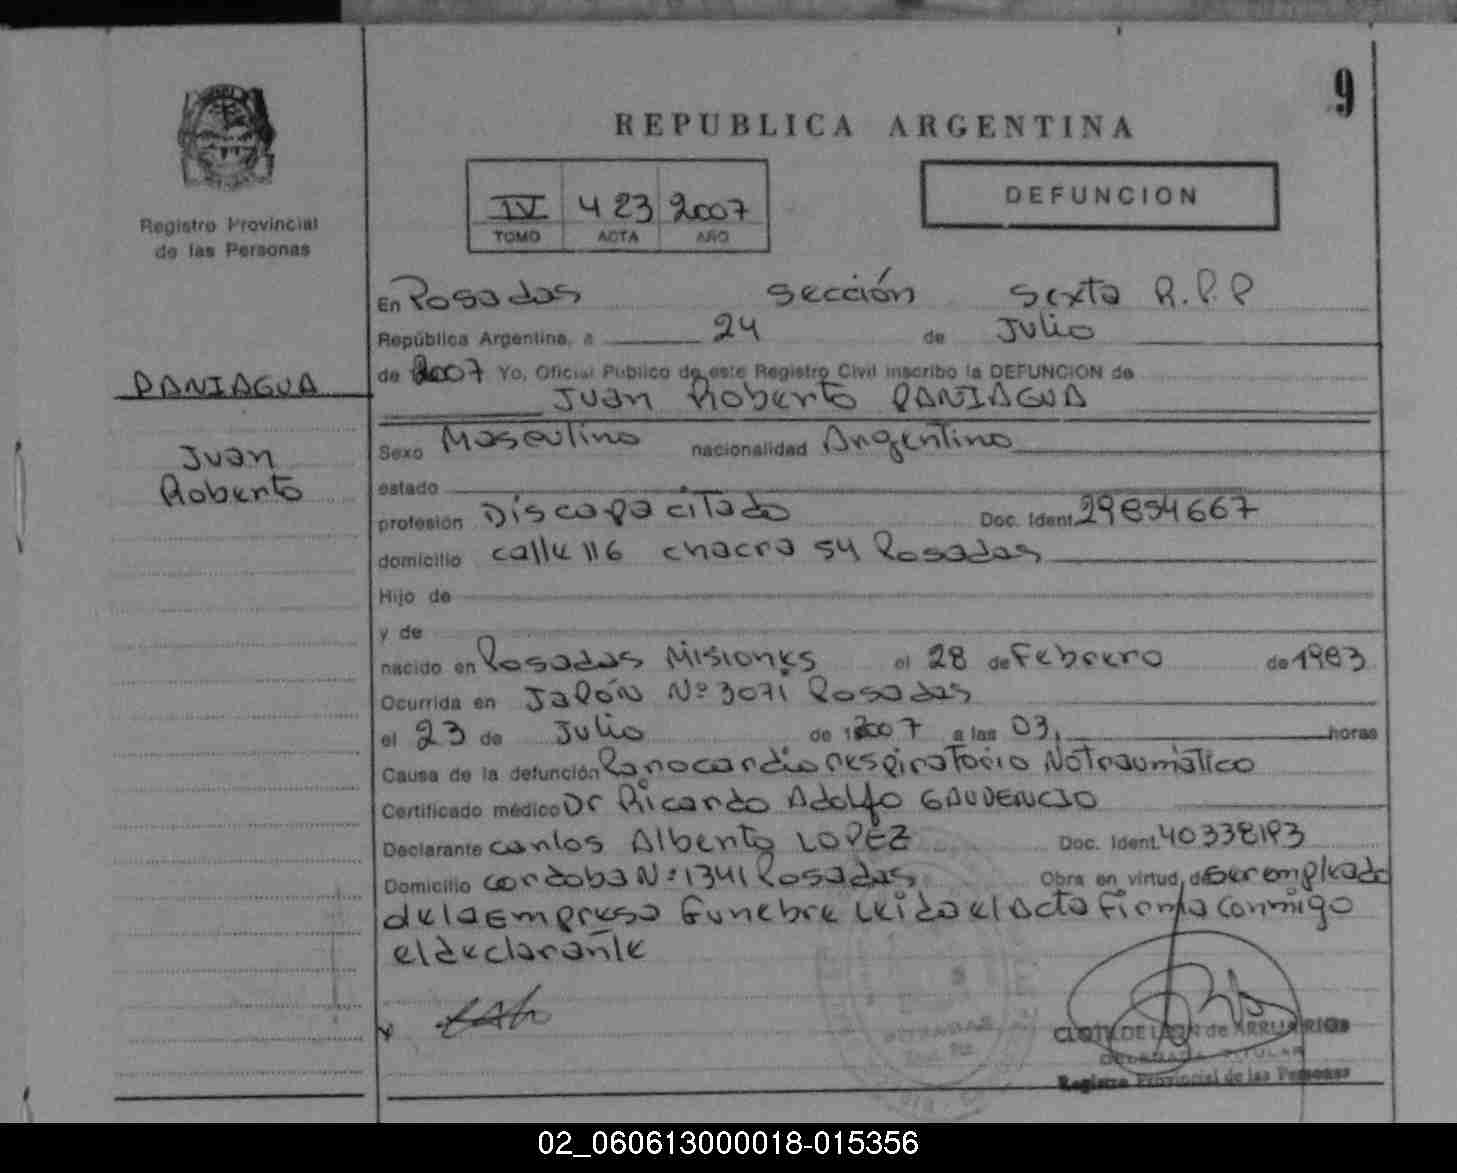 9
REPUBLICA ARGENTINA
IV 423 2007
TOMO ACTA AÑO
DEFUNCION
Registro Provincial
de las Personas
En Posadas sección sexta R.P.P
República Argentina, a 24 de Julio
de 2007 Yo, Oficial Público de este Registro Civil inscribo la DEFUNCION de
Juan Roberto PANIAGUA
PANIAGUA
Juan
Roberto
Sexo Masculino nacionalidad Argentino
estado
profesión Discapacitado Doc. Ident. 29854667
domicilio calle 116 chacra 54 Posadas
Hijo de
y de
nacido en Posadas Misiones el 28 de Febrero de 1983
Ocurrida en Japón Nº 3071 Posadas
el 23 de Julio de 2007 a las 03, horas
Causa de la defunción Parocardiorespiratorio No traumático
Certificado médico Dr Ricardo Adolfo GAUDENCIO
Declarante Carlos Alberto LOPEZ Doc. Ident. 40338193
Domicilio Cordoba Nº 1341 Posadas Obra en virtud de ser empleado
de la Empresa Funebre Leida el Acta Firma conmigo
el declarante
de ARRUA RIOS
DELEGADA TITULAR
Registro Provincial de las Personas
02_060613000018-015356